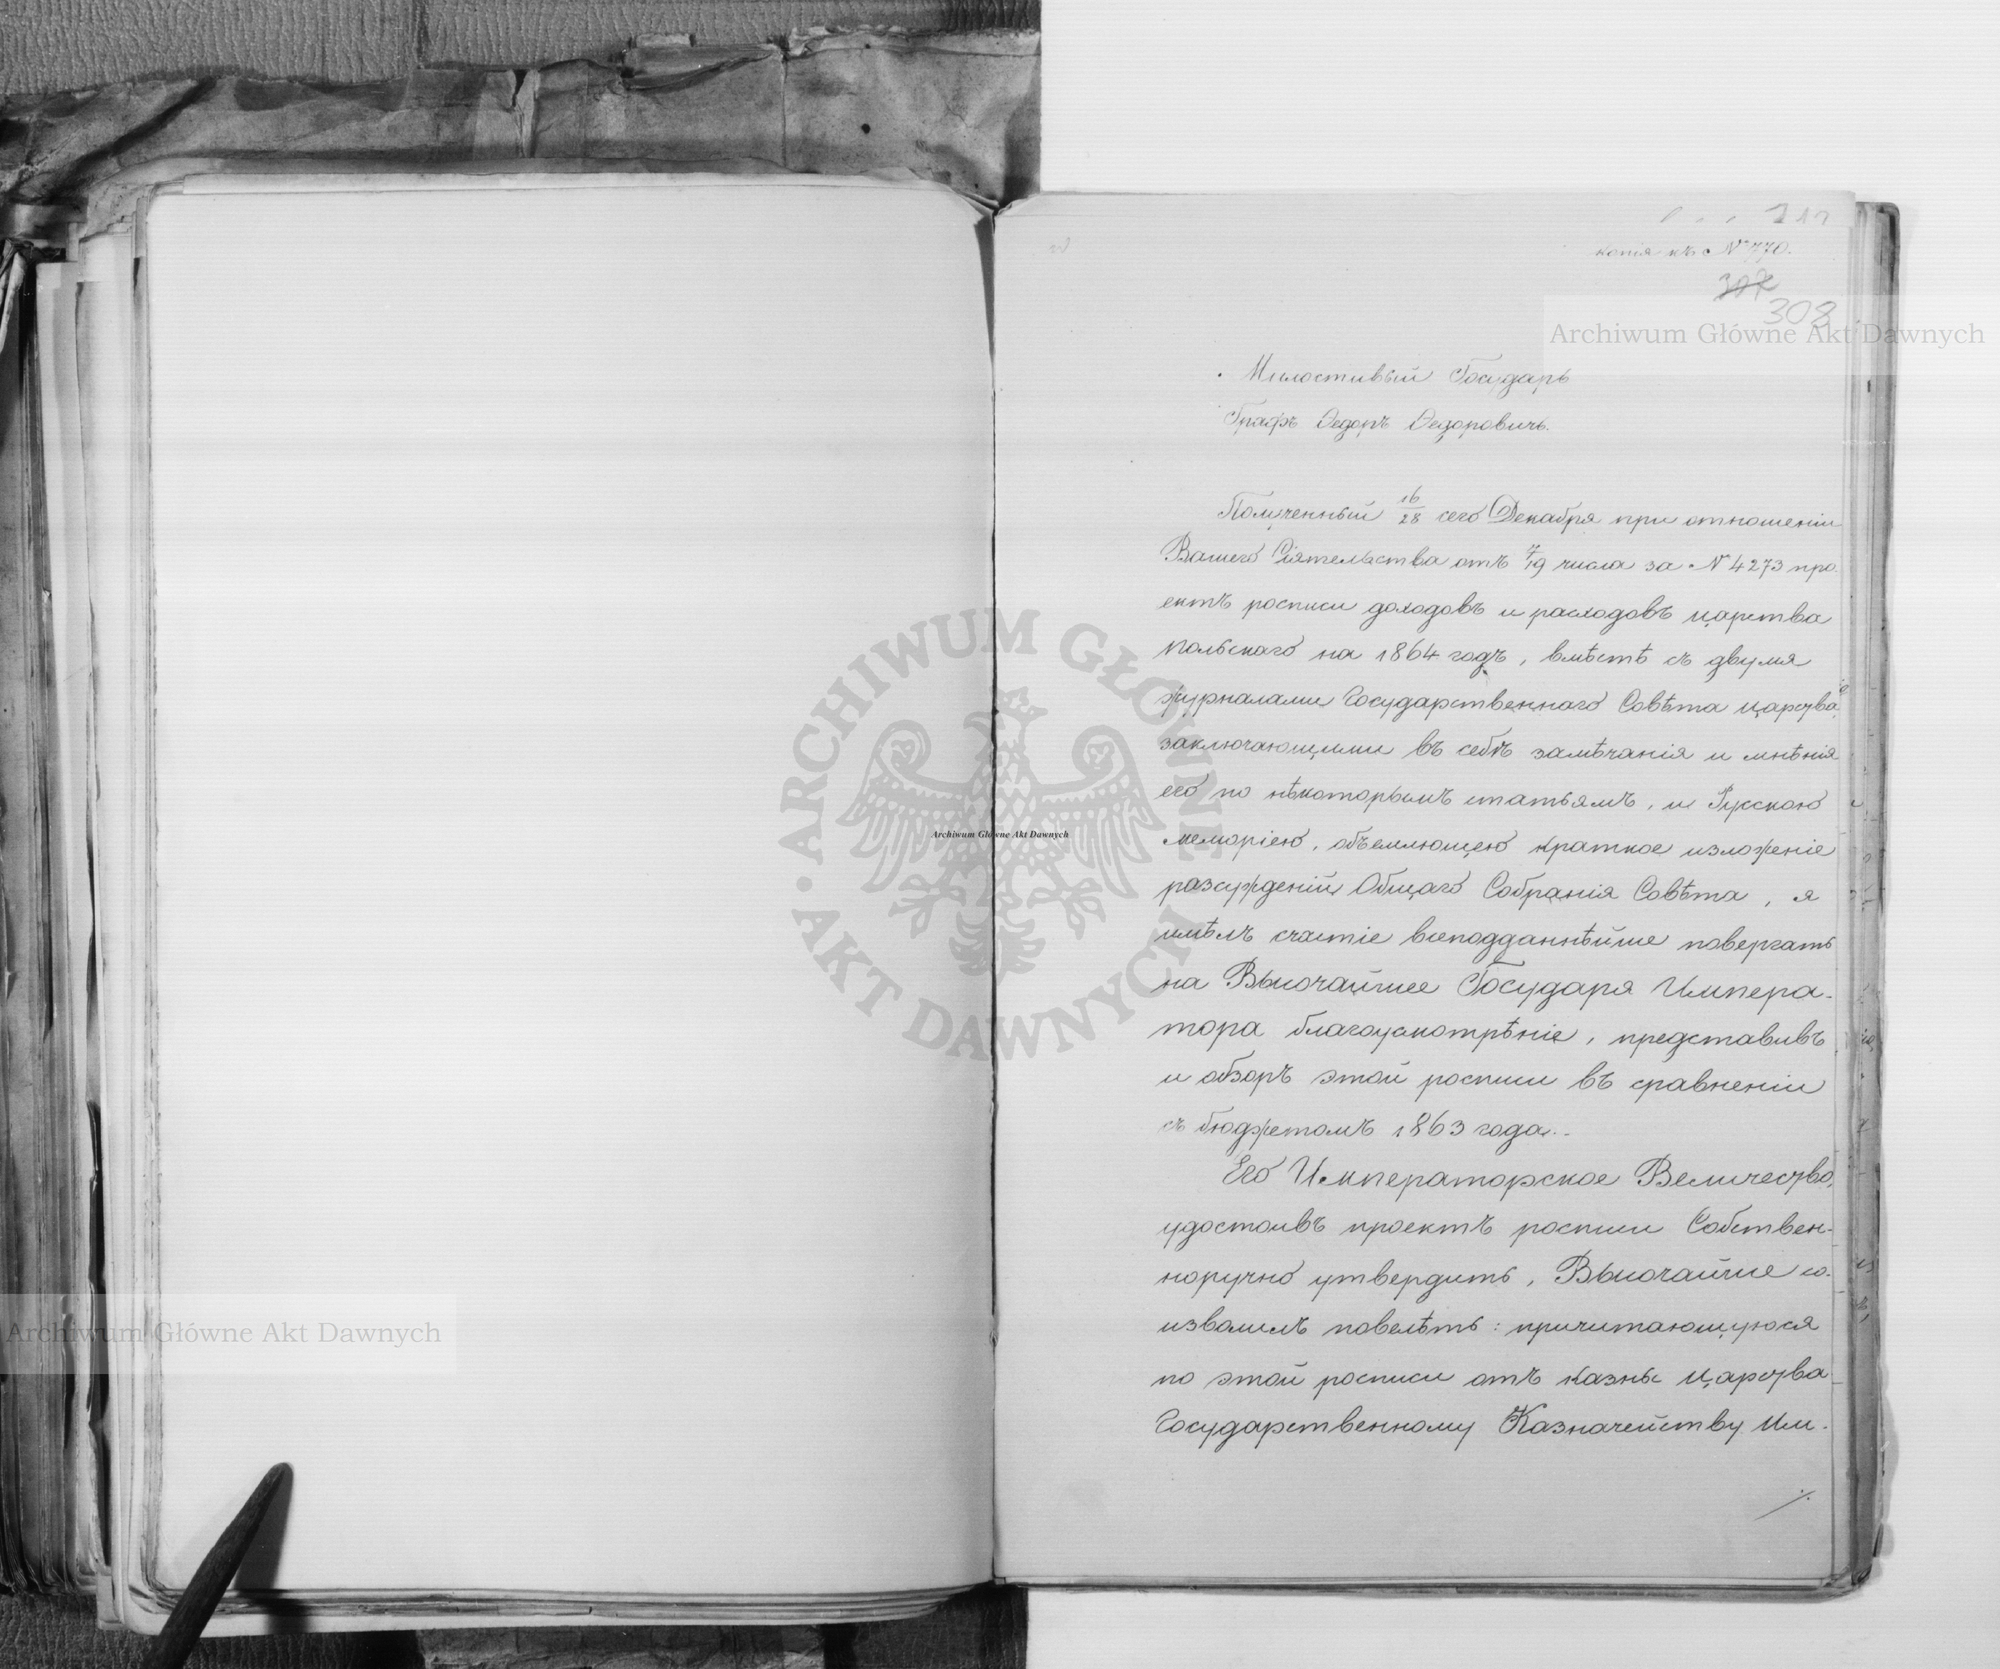 копія къ № 770.
307
308
Милостивый Государь
Графъ Ѳедоръ Ѳедоровичъ.
Полученный 16/28 сего Декабря при отношеніи
Вашего Сіятельства отъ 7/19 числа за № 4273 про-
ектъ росписи доходовъ и расходовъ царства
польскаго на 1864 годъ, вмѣстѣ съ двумя
журналами Государственнаго Совѣта царства,
заключающими въ себѣ замѣчанія и мнѣнія
его по нѣкоторымъ статьямъ, и Русскою
меморіею, объемлющею краткое изложеніе
разсужденій Общаго Собранія Совѣта, я
имѣлъ счастіе всеподданнѣйше повергать
на Высочайшее Государя Импера-
тора благоусмотрѣніе, представивъ
и обзоръ этой росписи въ сравненіи
съ бюджетомъ 1863 года.
Его Императорское Величество,
удостоивъ проектъ росписи Собствен-
норучно утвердить, Высочайше со-
изволилъ повелѣть: причитающуюся
по этой росписи отъ казны Царства
Государственному Казначейству Им-
./.
Archiwum Główne Akt Dawnych
ARCHIWUM GŁÓWNE AKT DAWNYCH
Archiwum Główne Akt Dawnych
Archiwum Główne Akt Dawnych